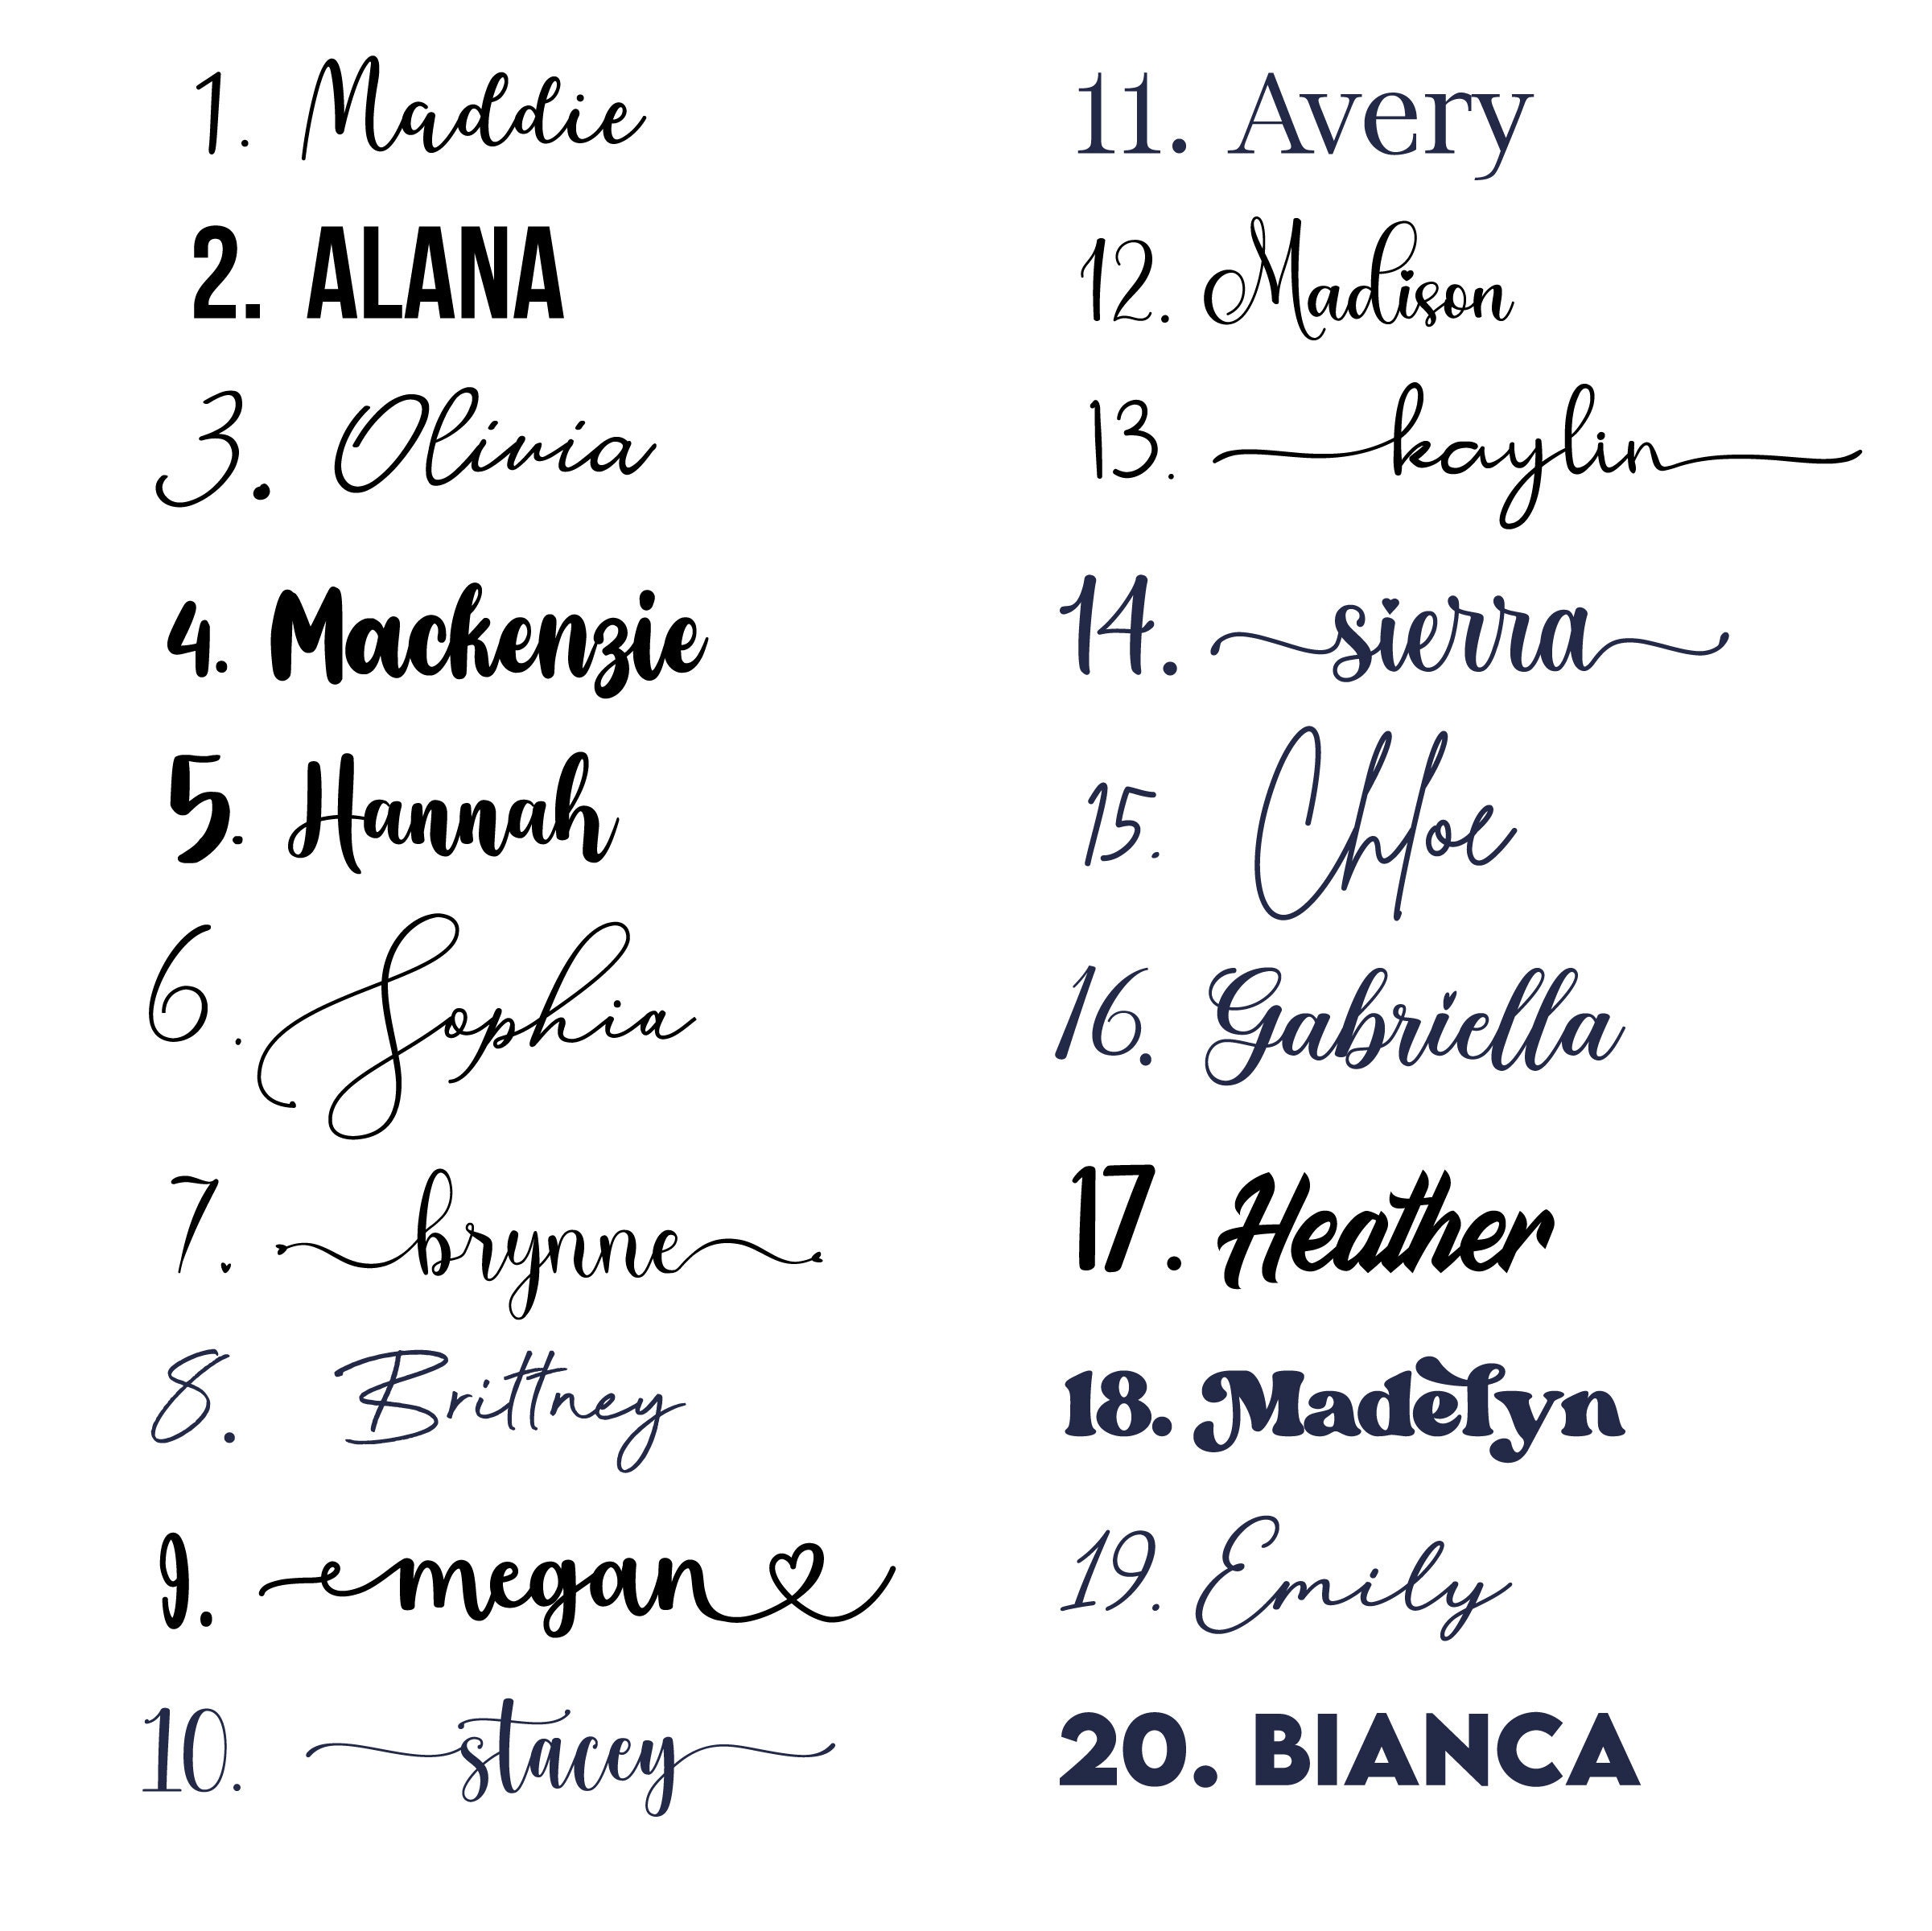 1. Maddie
2. ALANA
3. Olivia
4. Mackenzie
5. Hannah
6. Sophia
7. brynne
8. Brittney
9. megan
10. stacey
11. Avery
12. Madison
13. kaylin
14. sierra
15. Chloe
16. Gabriella
17. Heather
18. Madelyn
19. Emily
20. BIANCA